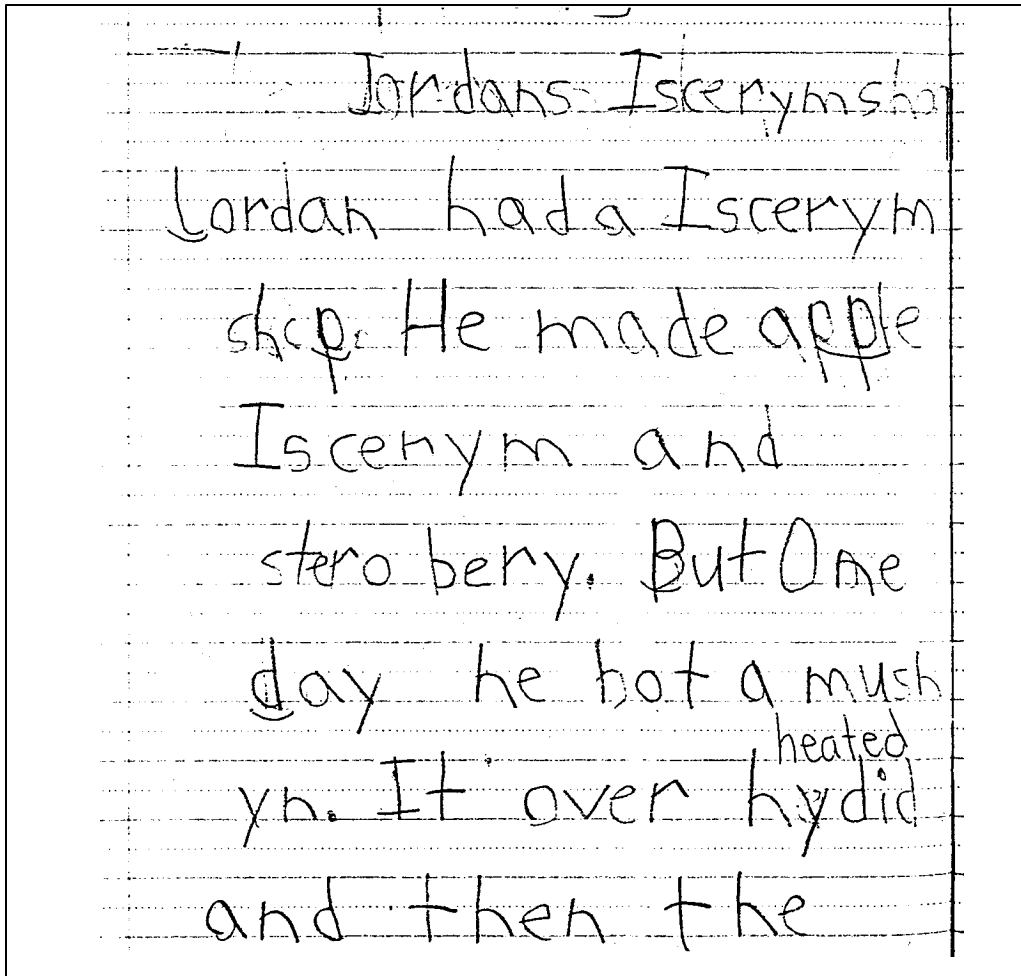 Jordans Iscerymshop
Jordan had a Iscerym
shop. He made apple
Iscerym and
sterobery. But One
day he bot a mush
heated
yn. It over hydid
and then the